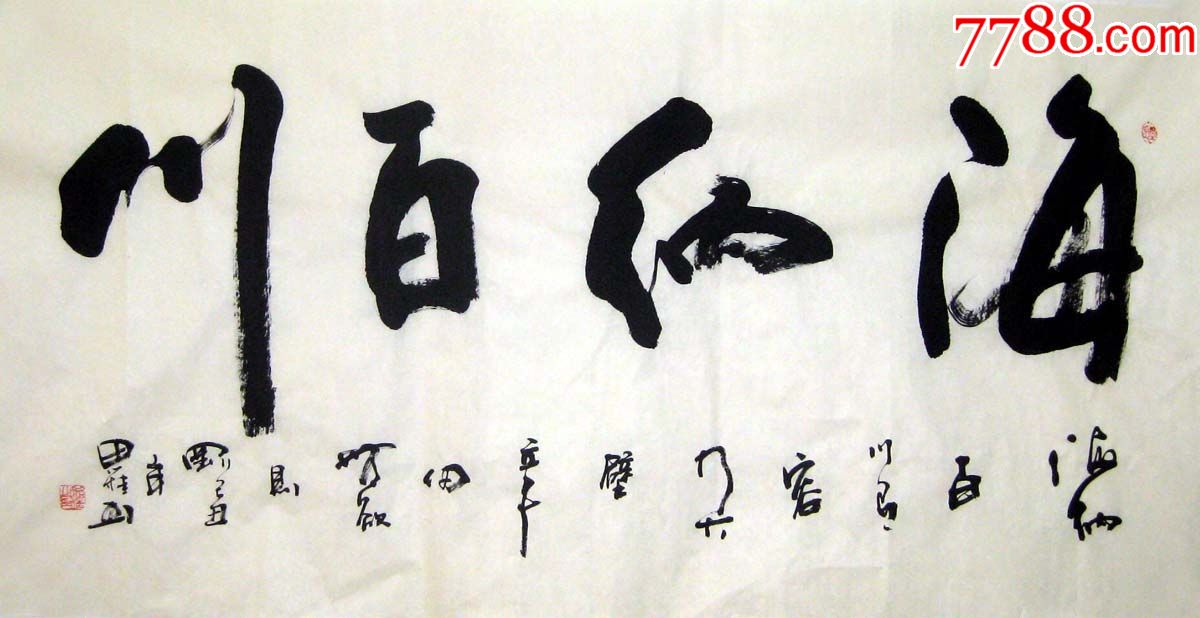 7788.com
海纳百川
海纳百川有容乃大壁立千仞無欲則剛己丑年